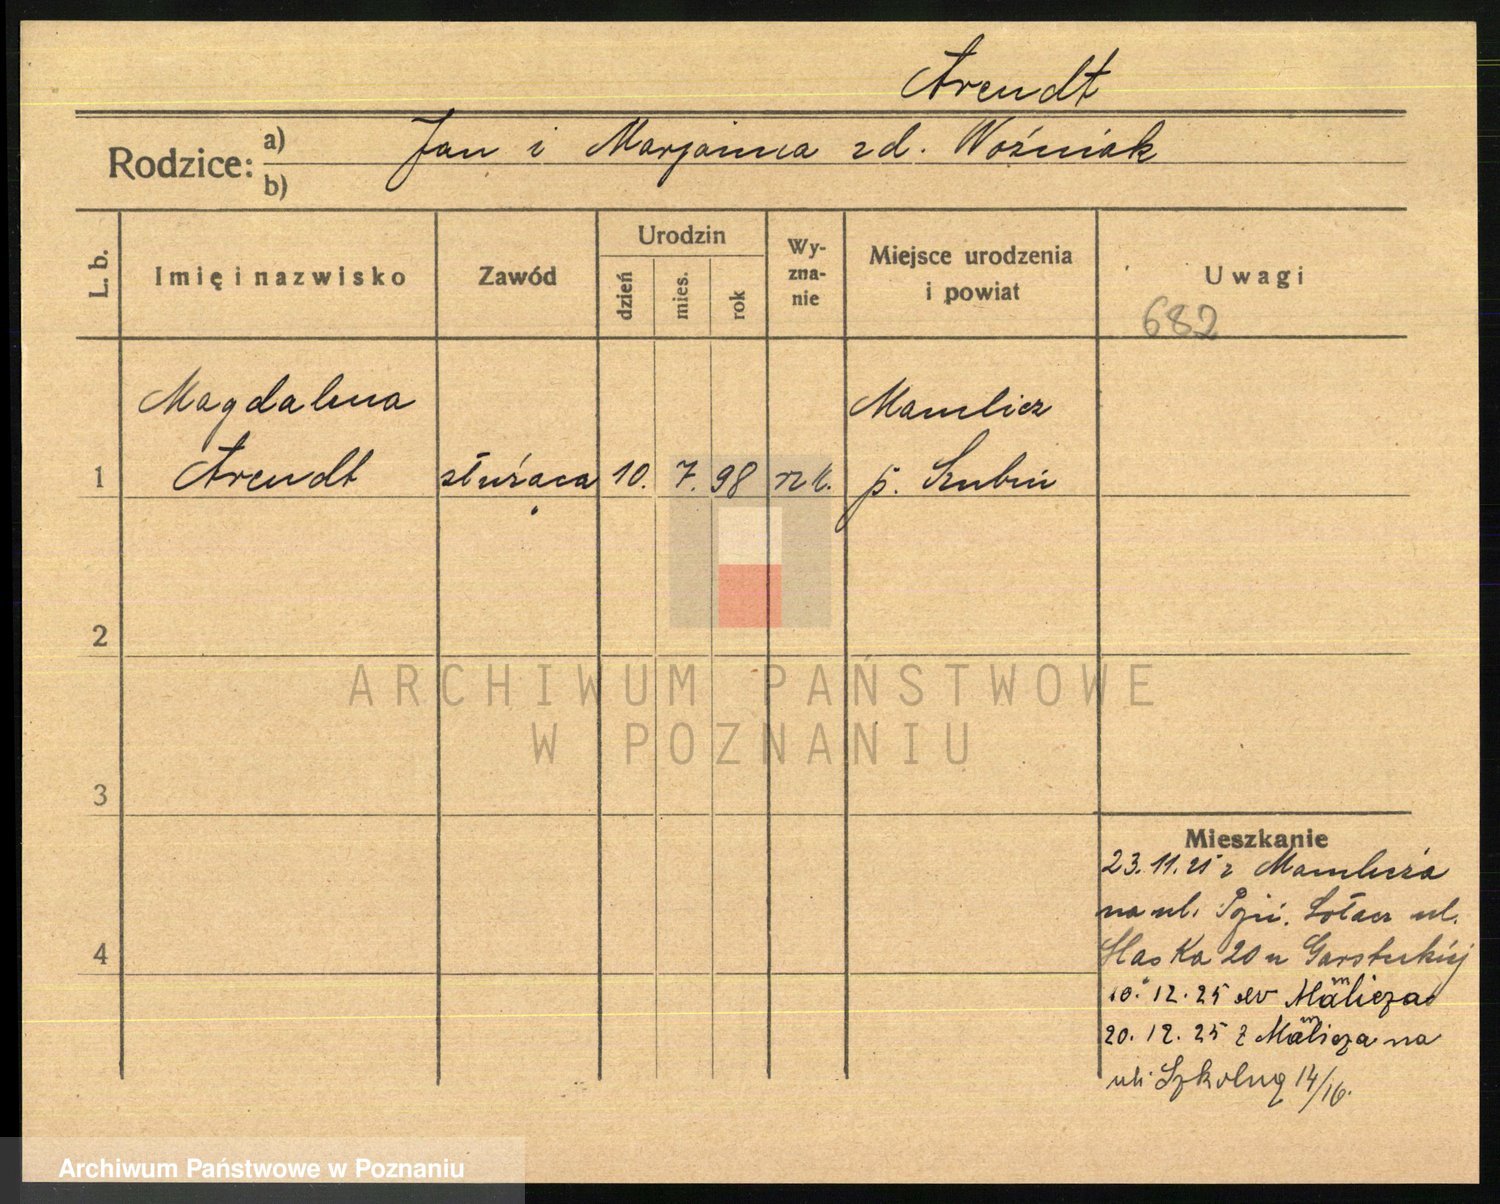 Arendt
Rodzice:
a)
Jan i Marjanna zd. Woźniak
b)
L. b.
Imię i nazwisko
Zawód
Urodzin
dzień
mies.
rok
Wy-
zna-
nie
Miejsce urodzenia
i powiat
Uwagi
682
Magdalena
Mamlicz
1
Arendt
służąca
10. 7. 98
rz k.
p. Szubin
2
ARCHIWUM PAŃSTWOWE
W POZNANIU
3
Mieszkanie
23. 11. 25 z Mamlicza
na ul. Sołacz ul.
20 u
4
10. 12. 25 do Mamlicza
20. 12. 25 z Mamlicza na
ul. Szkolną 14/16.
Archiwum Państwowe w Poznaniu